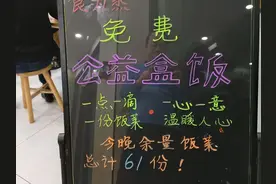 免费
公益盒饭
一点一滴·一心一意
一份饭菜 温暖人心
今晚余量饭菜
总计61份！